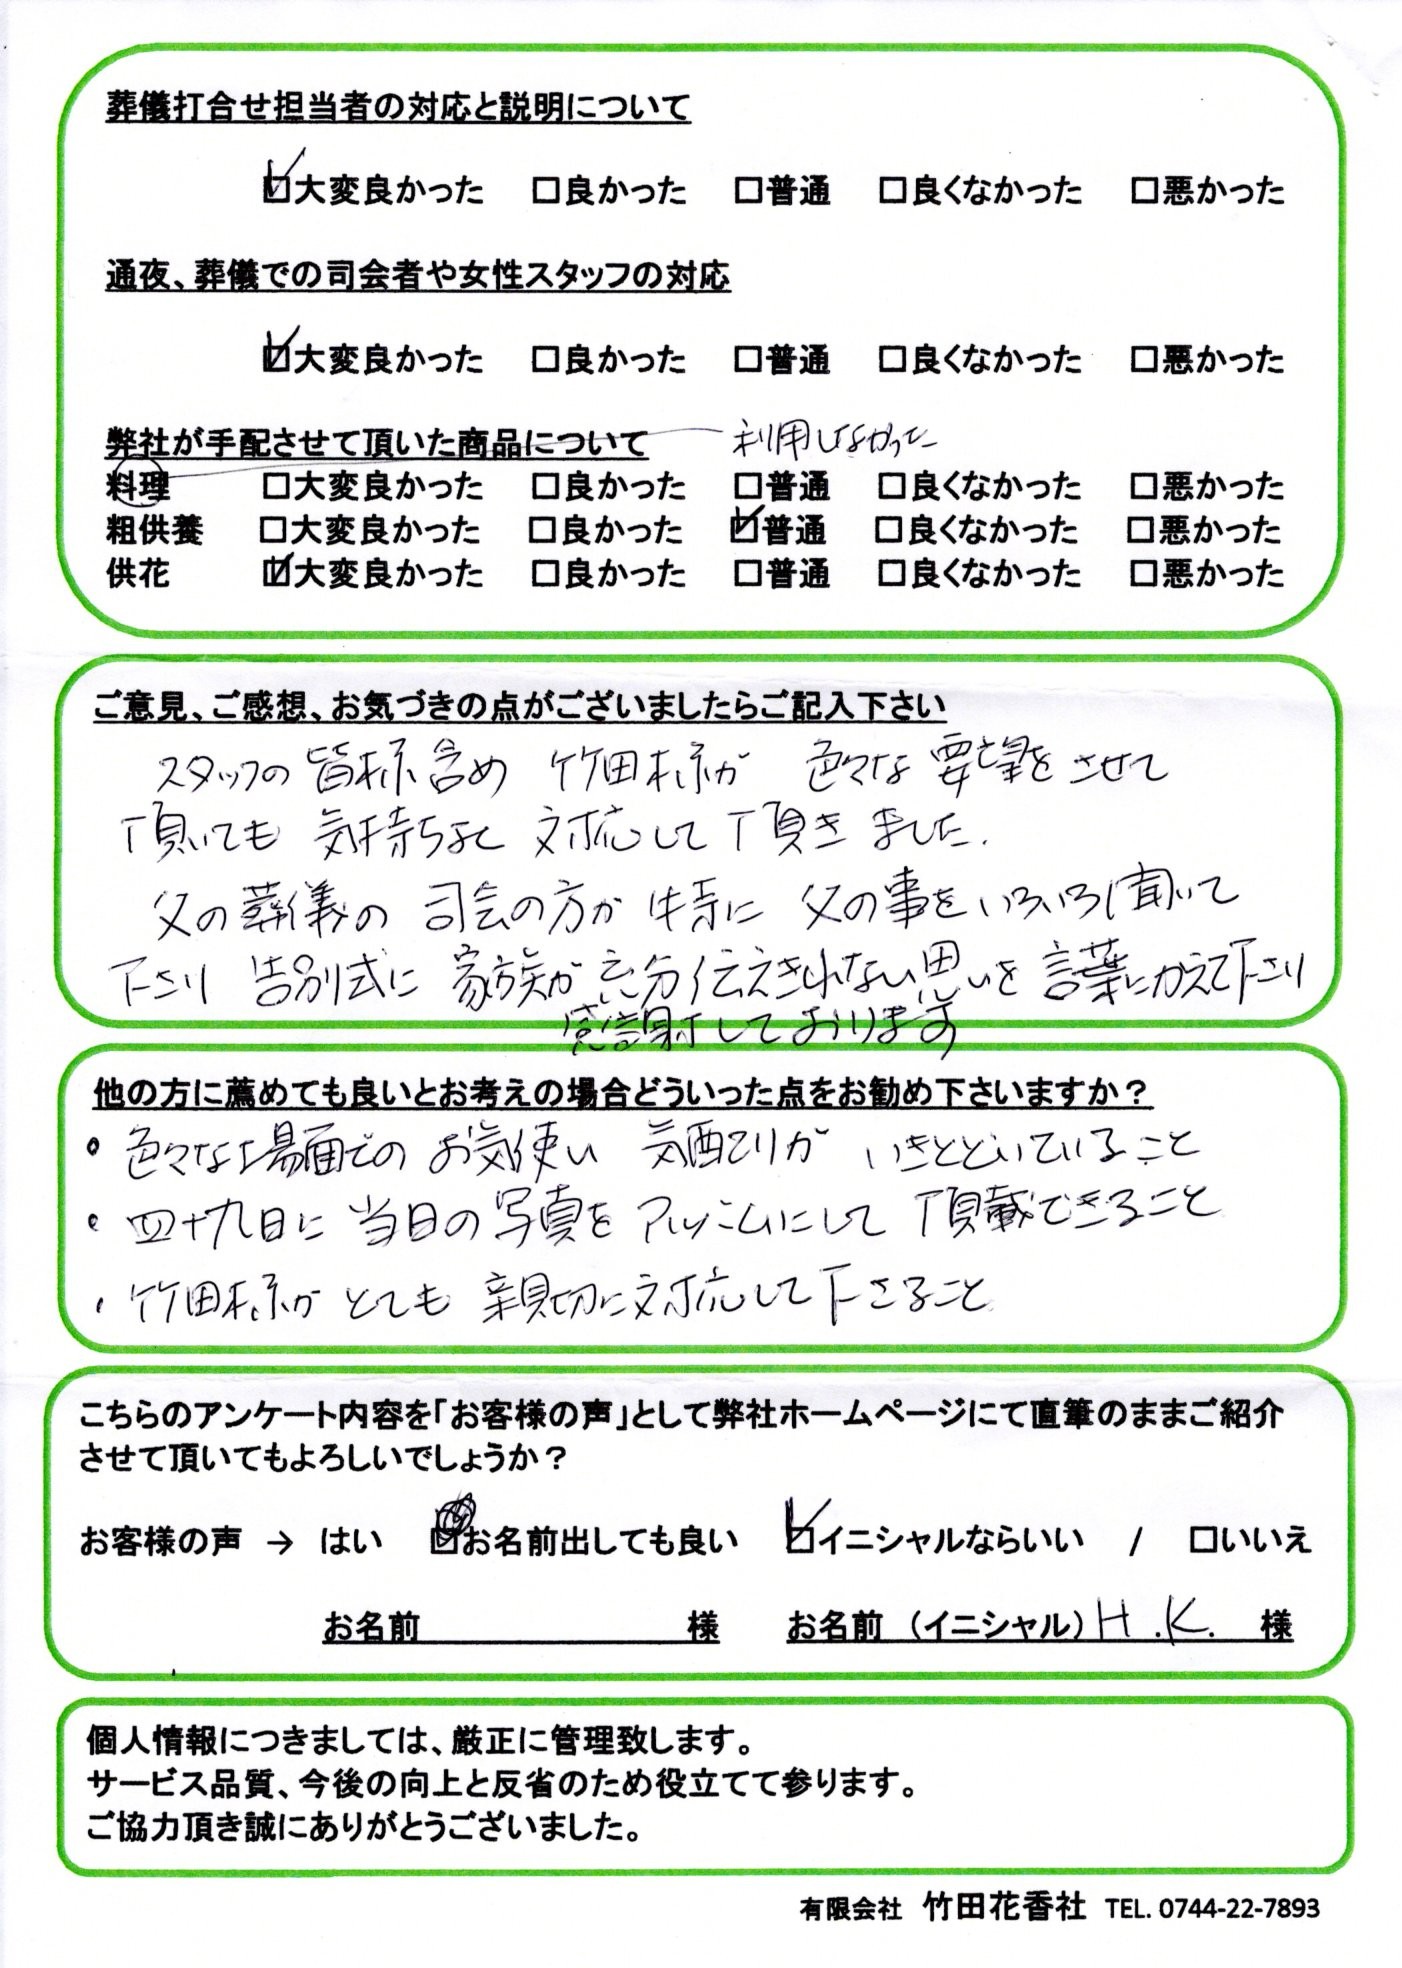 葬儀打合せ担当者の対応と説明について
☑大変良かった □良かった □普通 □良くなかった □悪かった
通夜、葬儀での司会者や女性スタッフの対応
☑大変良かった □良かった □普通 □良くなかった □悪かった
弊社が手配させて頂いた商品について 利用しなかった
料理 □大変良かった □良かった □普通 □良くなかった □悪かった
粗供養 □大変良かった □良かった ☑普通 □良くなかった □悪かった
供花 ☑大変良かった □良かった □普通 □良くなかった □悪かった
ご意見、ご感想、お気づきの点がございましたらご記入下さい
スタッフの皆様含め 竹田様が 色々な要望をさせて
頂いても 気持ちよく 対応して頂きました.
父の葬儀の 司会の方が 特に 父の事をいろいろ聞いて
下さり 告別式に 家族が充分伝えきれない思いを 言葉にかえて下さり
感謝しております
他の方に薦めても良いとお考えの場合どういった点をお勧め下さいますか？
• 色々な場面での お気使い 気配りが いきとどいていること
• 四十九日に 当日の写真を アルバムにして 頂載できること
• 竹田様が とても 親切に対応して下さること
こちらのアンケート内容を「お客様の声」として弊社ホームページにて直筆のままご紹介
させて頂いてもよろしいでしょうか？
お客様の声 → はい ☑お名前出しても良い ☑イニシャルならいい / □いいえ
お名前 様 お名前 （イニシャル） H.K. 様
個人情報につきましては、厳正に管理致します。
サービス品質、今後の向上と反省のため役立てて参ります。
ご協力頂き誠にありがとうございました。
有限会社 竹田花香社 TEL. 0744-22-7893